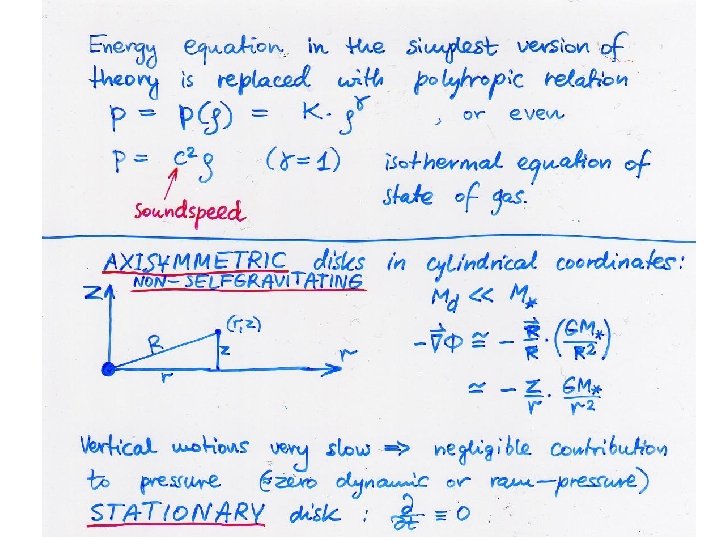 Energy equation in the simplest version of
theory is replaced with polytropic relation
p = p(ρ) = K·ρ^γ , or even
p = c²ρ (γ=1) isothermal equation of
state of gas.
Soundspeed
AXISYMMETRIC disks in cylindrical coordinates:
NON-SELFGRAVITATING
M_d << M_*
z
(r,z)
R
z
r
r
-∇⃗Φ ≅ - R⃗/R · (GM_*/R²)
≃ - z/r · GM_*/r²
Vertical motions very slow ⇒ negligible contribution
to pressure (≈zero dynamic or ram-pressure)
STATIONARY disk : ∂/∂t ≡ 0